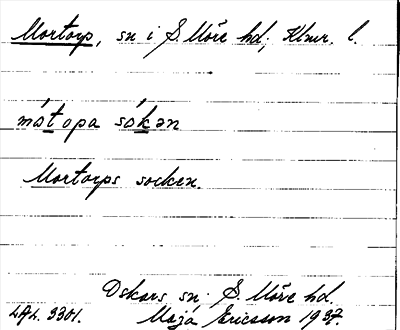 Mortorp, sn i S. Möre hd, Klmr. l.
mótopa sókən
Mortorps socken.
Oskars sn. S. Möre hd.
LAL. 3301. Maja Ericsson 1937.